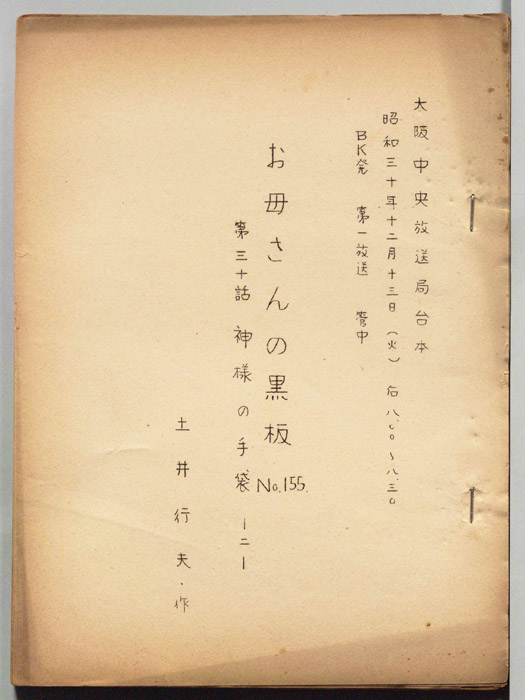 大阪中央放送局台本
昭和三十年十二月十三日（火）后八.〇〇～八.三〇
BK発 第一放送 管中
お母さんの黒板 No.155.
第三十話 神様の手袋 ー二ー
土井行夫・作